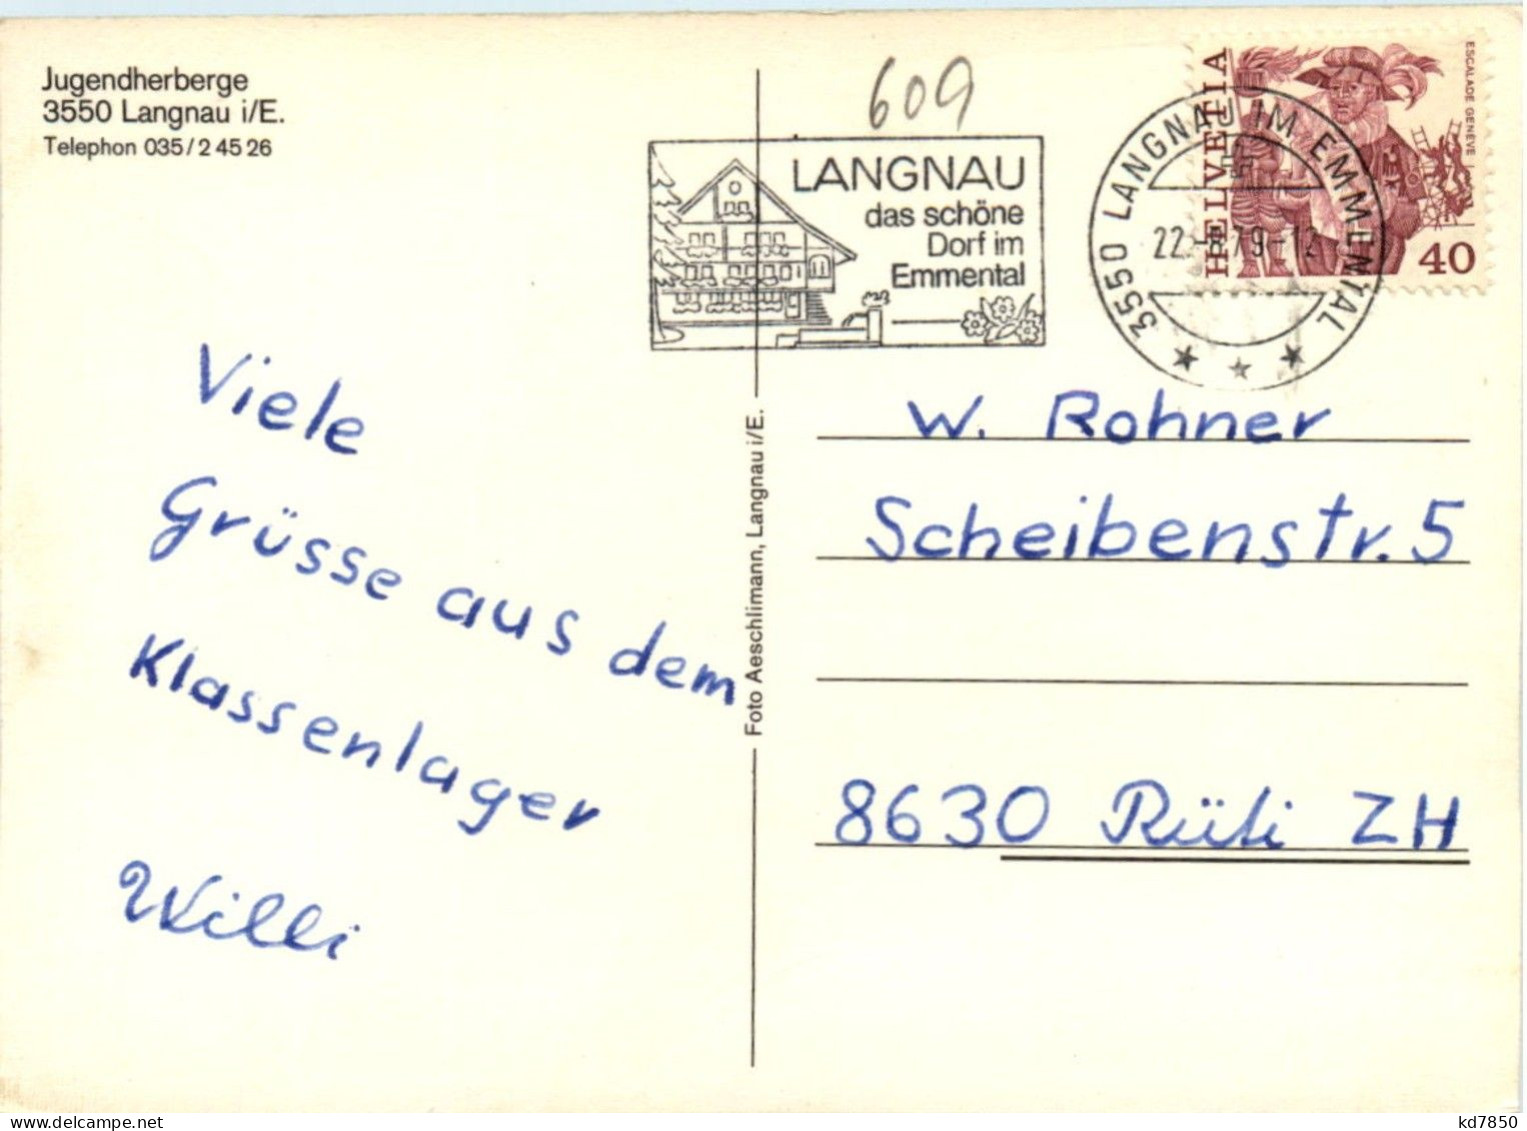 Jugendherberge
3550 Langnau i/E.
Telephon 035/2 45 26
609
LANGNAU
das schöne
Dorf im
Emmental
3550 LANGNAU IM EMMENTAL
22.-8.79-12
HELVETIA
ESCALADE GENÈVE
40
Viele
Grüsse aus dem
Klassenlager
Willi
Foto Aeschlimann, Langnau i/E.
W. Rohner
Scheibenstr. 5
8630 Rüti ZH
kd7850